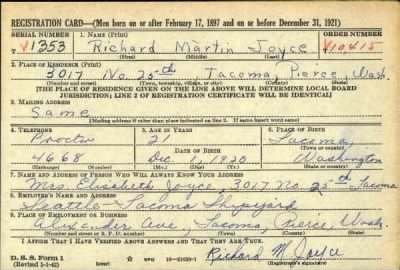 REGISTRATION CARD—(Men born on or after February 17, 1897 and on or before December 31, 1921)
SERIAL NUMBER 1. NAME (Print) ORDER NUMBER
V1353 Richard Martin Joyce V10415
(First) (Middle) (Last)
2. PLACE OF RESIDENCE (Print)
3017 No. 25th Tacoma, Pierce, Wash.
(Number and street) (Town, township, village, or city) (County) (State)
[THE PLACE OF RESIDENCE GIVEN ON THE LINE ABOVE WILL DETERMINE LOCAL BOARD
JURISDICTION; LINE 2 OF REGISTRATION CERTIFICATE WILL BE IDENTICAL]
3. MAILING ADDRESS
Same
[Mailing address if other than place indicated on line 2. If same insert word same]
4. TELEPHONE 5. AGE IN YEARS 6. PLACE OF BIRTH
Proctor 21 Tacoma,
(Town or county)
4668 Dec 1920 Washington
(Exchange) (Number) (Mo.) (Day) (Yr.) (State or country)
7. NAME AND ADDRESS OF PERSON WHO WILL ALWAYS KNOW YOUR ADDRESS
Mrs. Elizabeth Joyce, 3017 No. 25th Tacoma
8. EMPLOYER'S NAME AND ADDRESS
Seattle - Tacoma Shipyard
9. PLACE OF EMPLOYMENT OR BUSINESS
Alexander Ave, Tacoma, Pierce, Wash.
(Number and street or R. F. D. number) (Town) (County) (State)
I AFFIRM THAT I HAVE VERIFIED ABOVE ANSWERS AND THAT THEY ARE TRUE.
D. S. S. Form 1
(Revised 1-1-42) GPO 16—21630-1 Richard M. Joyce
(Registrant's signature)